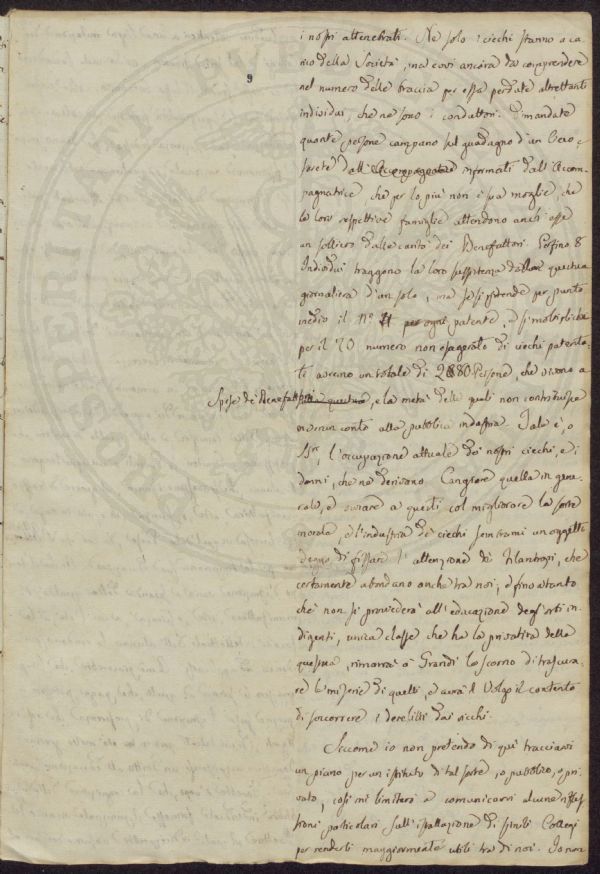 9
i nostri attenebrati. Ne solo i ciechi stanno a ca-
rico della Società, ma covi ancora da comprendere
nel numero delle braccia per essa perdute altrettanti
individui, che ne sono i conduttori. Dimandate
quante persone campano sul guadagno d'un Cieco,
sarete dall' Accompagnatore informati dall'Accom-
pagnatrice, che per lo più non è sua moglie, che
le loro respettive famiglie attendono anch'esse
un sollievo dalla carità dei Benefattori. Persino 8
Individui traggono la loro sussistenza dalla questua
giornaliera d'un solo, ma se si prende per punto
medio il n.º 4 per ogni patente, e si moltiplica
per il 70 numero non esagerato di ciechi patenta-
ti avremo un totale di 280 Persone, che vivono a
Spese de' Benefattori
questua, e la metà delle quali non contribuisce
in verun conto alla pubblica industria. Tale è, o
SSri, l'occupazione attuale dei nostri ciechi, e i
danni, che ne derivano. Cangiare quella in gene-
rale, e ovviare a questi col migliorare la sorte
morale, e l'industria de' ciechi sembrami un oggetto
degno di fissare l'attenzione de' Filantropi, che
certamente abondano anche tra noi, e fino a tanto
che non si provvederà all'educazione degl'orbi in-
digenti, unica classe che ha la privativa della
questua, rimarrà a' Grandi lo scorno di trascura-
re le miserie di quelli, ed avrà il Volgo il contento
di soccorrere i derelitti dai ricchi.
Siccome io non pretendo di quì tracciarvi
un piano per un istituto di tal sorte, o pubblico, o pri-
vato, così mi limiterò a comunicarvi alcune rifles-
sioni particolari sull'istallazione di simili Collegi
per renderli maggiormente utili tra di noi. Io non